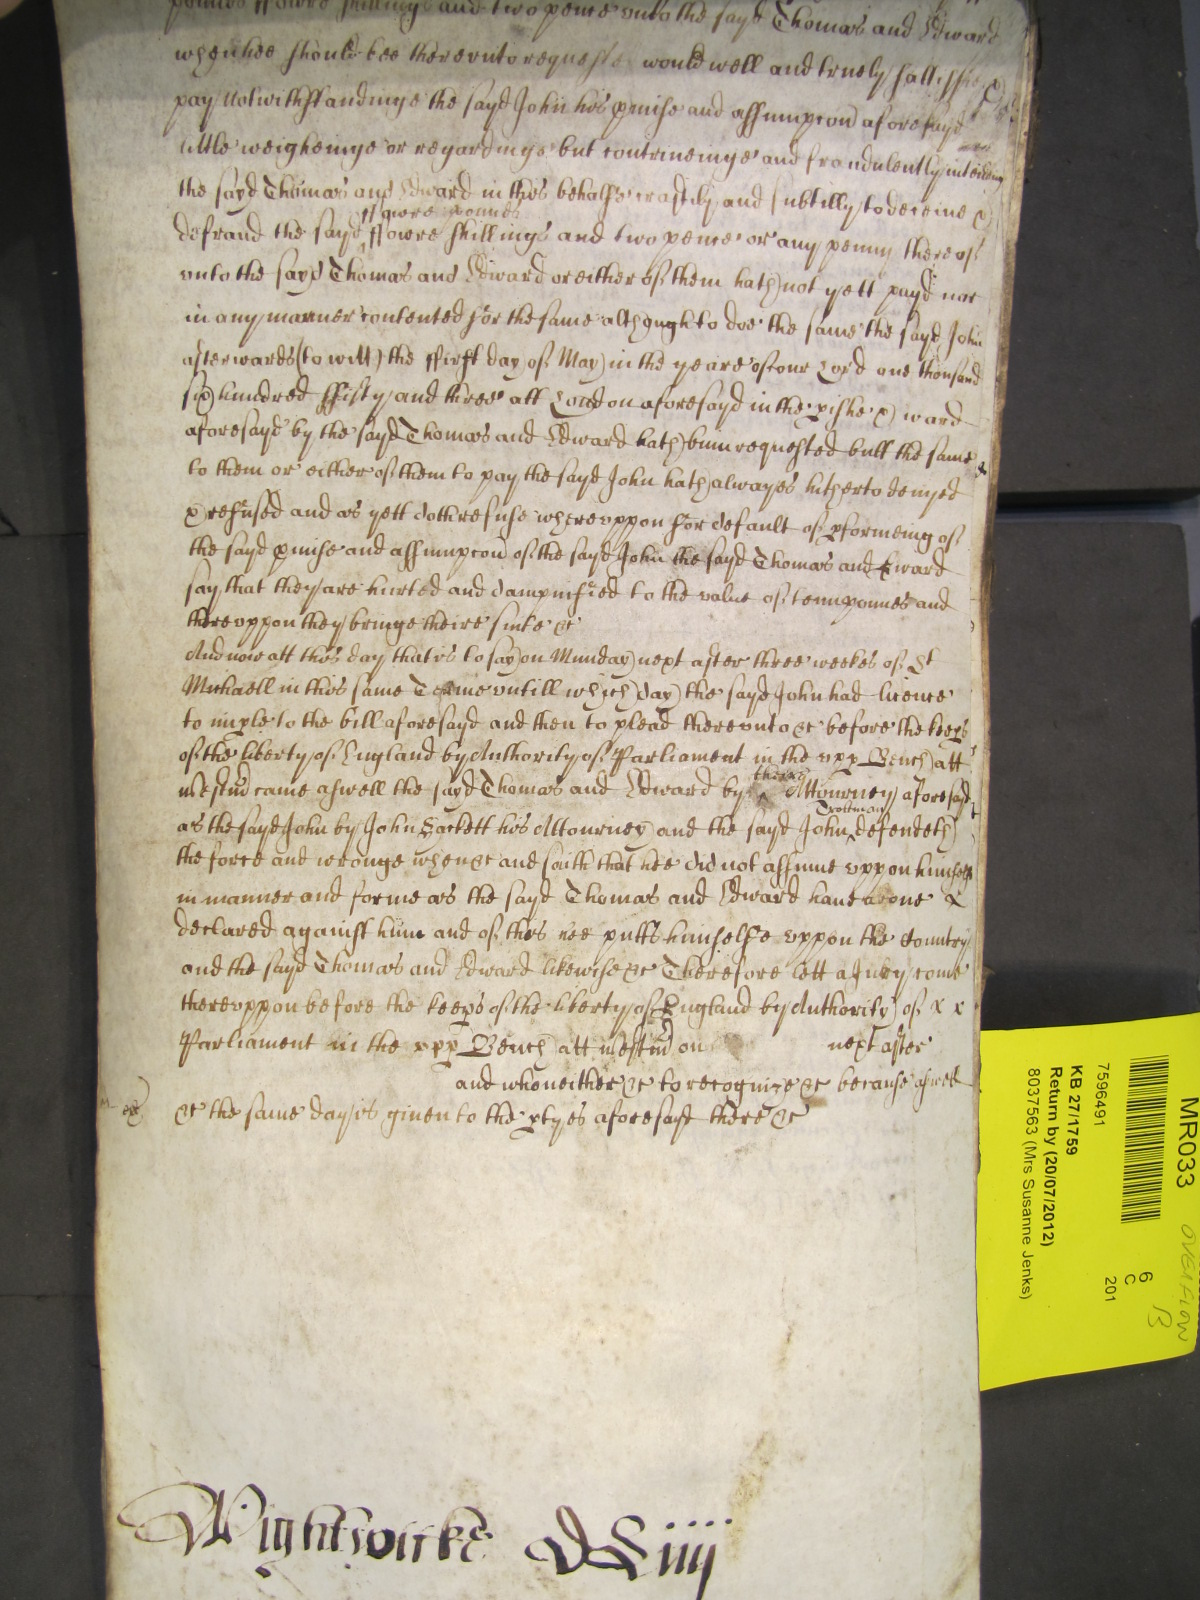 pounds ffowre shillings and two pence unto the sayd Thomas and Edward
when hee should bee thereunto requested would well and truely sattisfie &
pay Notwithstandinge the sayd John his pmise and assumpcon aforesayd
little weigheinge or regardinge but contriveinge and fraudulently intending
the sayd Thomas and Edward in this behalfe craftily and subtilly to deceive &
ffowre pounds
defraud the sayd ffowre shillings and two pence or any penny thereof
unto the sayd Thomas and Edward or either of them hath not yett payd nor
in any manner contented for the same although to doe the same the sayd John
afterwards (to witt) the ffirst day of May in the yeare of our Lord one thousand
six hundred ffifty and three att London aforesayd in the pishe & ward
aforesayd by the sayd Thomas and Edward hath bin requested butt the same
to them or either of them to pay the sayd John hath alwayes hitherto denyed
& refused and as yett doth refuse whereuppon for default of pformeing of
the sayd pmise and assumpcon of the sayd John the sayd Thomas and Edward
say that they are hurted and dampnified to the value of tenn pounds and
thereuppon they bringe theire suite &c
And now att this day that is to say on Munday next after three weekes of St
Michaell in this same Terme untill which day the sayd John had licence
to imple to the bill aforesayd and then to plead thereunto &c before the keeps
of the liberty of England by Authority of Parliament in the upp Bench att
Westm came aswell the sayd Thomas and Edward by theire Attourney aforesayd
as the sayd John by John Sackett his Attourney and the sayd John Trottman defendeth
the force and wronge when &c and saith that hee did not assume uppon himselfe
in manner and forme as the sayd Thomas and Edward have above
declared against him and of this hee putts himselfe uppon the Country
and the sayd Thomas and Edward likewise &c Therefore lett a Jury come
thereuppon before the keeps of the liberty of England by Authority of x x
Parliament in the upp Bench att Westm on next after
and who neither &c to recognize &c because aswell
&c the same day is given to the ptyes aforesayd there &c
Wightwicke DCiiij
MR033
7596491
KB 27/1759
Return by (20/07/2012)
8037563 (Mrs Susanne Jenks)
6
C
201
OVERFLOW
B